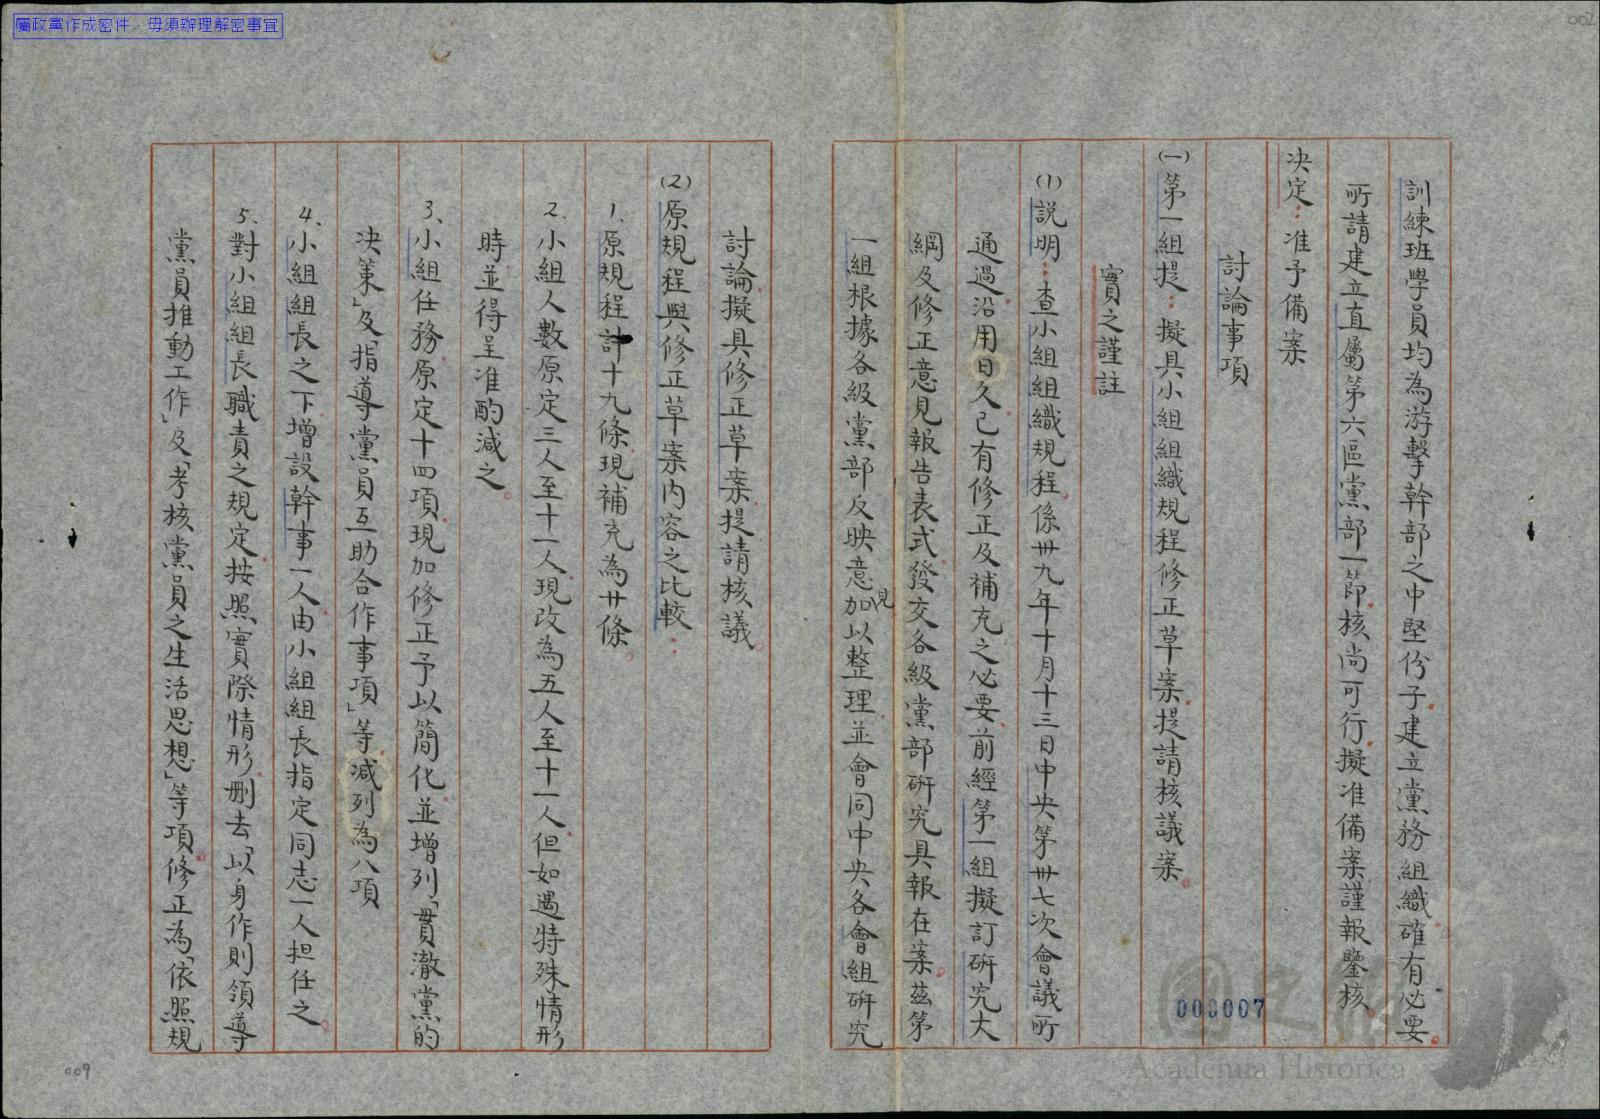 屬政黨作成密件，毋須辦理解密事宜
002
訓練班學員均為游擊幹部之中堅份子建立黨務組織確有必要
所請建立直屬第六區黨部一節核尚可行擬准備案謹報鑒核
決定：准予備案
討論事項
(一)第一組提：擬具小組組織規程修正草案提請核議案
實之謹註
(1)説明：查小組組織規程係卅九年十月十三日中央第卅七次會議所
通過沿用日久已有修正及補充之必要前經第一組擬訂研究大
綱及修正意見報告表式發交各級黨部研究具報在案茲第
一組根據各級黨部反映意見加以整理並會同中央各會組研究
討論擬具修正草案提請核議
(2)原規程與修正草案内容之比較：
1、原規程計十九條現補充為廿條
2.小組人數原定三人至十一人現改為五人至十一人但如遇特殊情形
時並得呈准酌減之
3、小組任務原定十四項現加修正予以簡化並增列「貫澈黨的
決策」及「指導黨員互助合作事項」等減列為八項
4.小組組長之下增設幹事一人由小組組長指定同志一人担任之
5.對小組組長職責之規定按照實際情形刪去「以身作則領導
黨員推動工作」及「考核黨員之生活思想」等項修正為「依照規
000007
國史館
Academia Historica
009